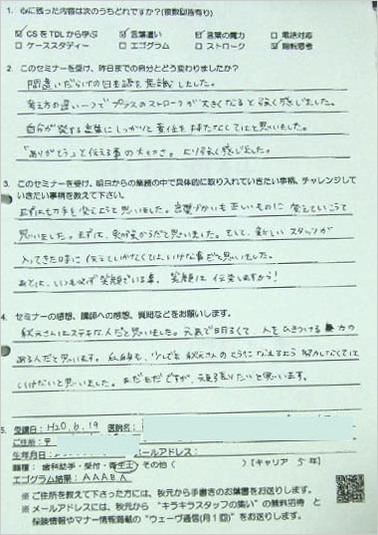 1. 心に残った内容は次のうちどれですか?(複数回答有り)
☑ CSをTDLから学ぶ ☑ 言葉遣い ☑ 言葉の魔力 □ 電話対応
□ ケーススタディー □ エゴグラム □ ストローク ☑ 陽転思考
2. このセミナーを受け、昨日までの自分とどう変わりましたか?
間違いだらけの日本語を意識しました。
考え方の違い一つでプラスのストロークが大きくなると強く感じました。
自分が発する言葉にしっかりと責任を持たなくてはと思いました。
「ありがとう」と伝える事の大切さ。より強く感じました。
3. このセミナーを受け、明日からの業務の中で具体的に取り入れていきたい事柄、チャレンジして
いきたい事柄を教えて下さい。
思いました。言葉づかいも正しいものに変えていこうと
思いました。まずは、 だと思いました。そして、新しいスタッフが
入ってきた時に伝えていかなくてはいけない事だと思いました。
あとは、いつも必ず笑顔でいる事。笑顔は伝染しますから!
4. セミナーの感想、講師への感想、質問などをお願いします。
秋元さんはステキな人だと思いました。元気で明るくて、人をひきつける 力の
ある人だと思います。私自身も、少しでも秋元さんのようになれるよう努力しなくては
いけないと思いました。まだまだですが、元気で頑張りたいと思います。
5. 受講日:H20.6.19 医院名:
ご住所:〒
生年月日: メールアドレス:
職種:歯科助手・受付・衛生士 その他( )【キャリア 5年】
エゴグラム結果:AAABA
※ ご住所を教えて下さった方には、秋元から手書きのお葉書をお送りします。
※ メールアドレスには、秋元から“キラキラスタッフの集い”の無料招待と
保険情報やマナー情報満載の“ウェーブ通信(月1回)”をお送りします。